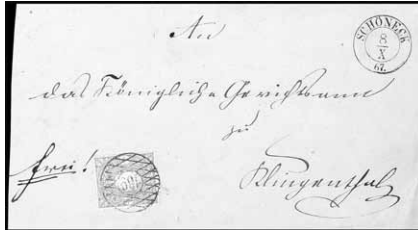 An
SCHÖNECK
8
X
67.
das Königliche Gerichtsamt
zu
frei!
Klingenthal